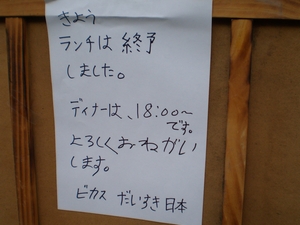 きょう
ランチは 終予
しました。
ディナーは、18:00～
です。
よろしくおねがい
します。
ビカス だいすき 日本